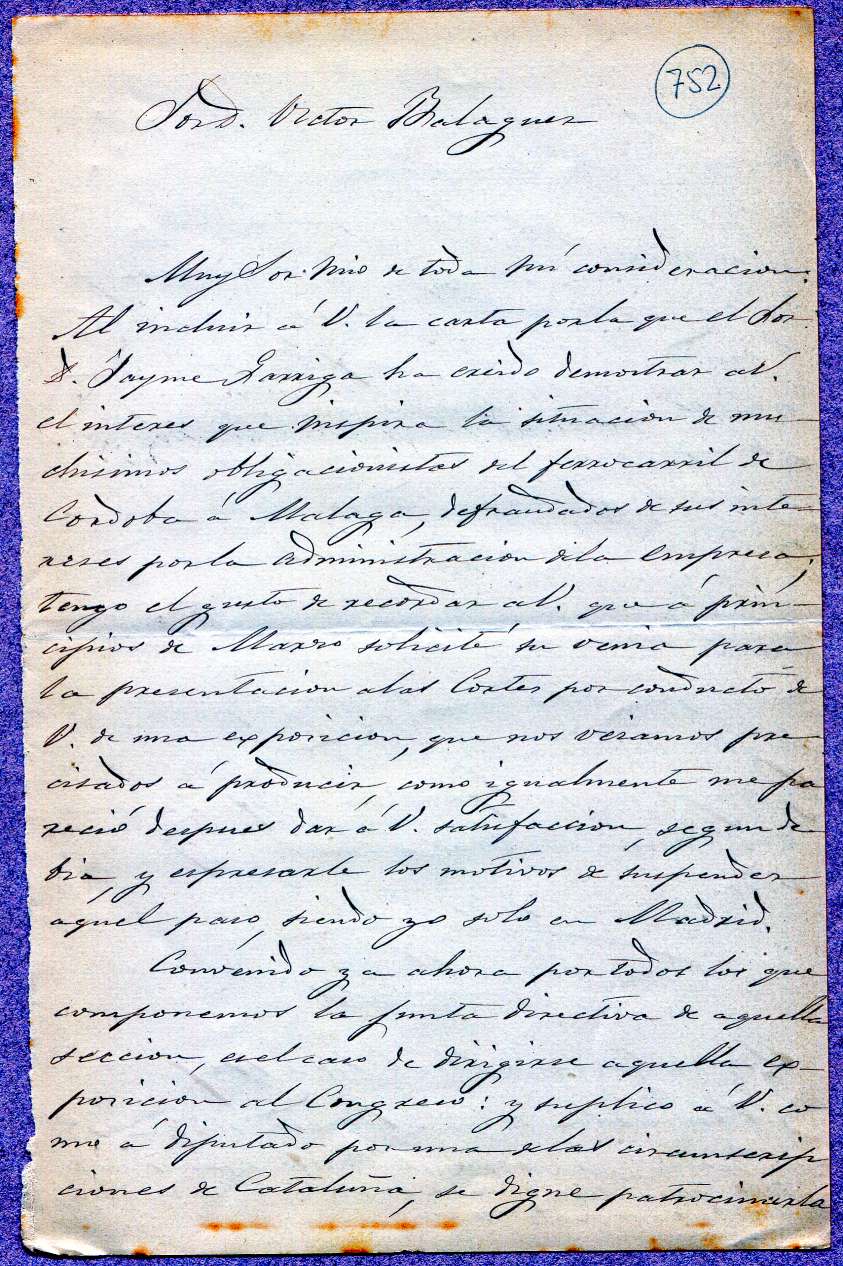 752
Sor D. Victor Balaguer
Muy Sor. mio de toda mi consideracion.
Al incluir á V. la carta por la que el Sor.
D. Jayme Garriga ha creido demostrar a V.
el interes que inspira la situacion de mu-
chisimos obligacionistas del ferrocarril de
Cordoba á Malaga, defraudados de sus inte-
reses por la administracion de la Empresa;
tengo el gusto de recordar a V. que á prin-
cipios de Marzo solicité su venia para
la presentacion a las Cortes por conducto de
V. de una exposicion, que nos veiamos pre
cisados á producir, como igualmente me pa
reció despues dar á V. satisfaccion, segun de
bia, y espresarle los motivos de suspender
aquel paso, siendo yo solo en Madrid.
Convenido ya ahora por todos los que
componemos la junta directiva de aquella
seccion, es el caso de dirigirse aquella ex-
posicion al Congreso: y suplico á V. co
mo á diputado por una de las circunscrip
ciones de Cataluña, se digne patrocinarla